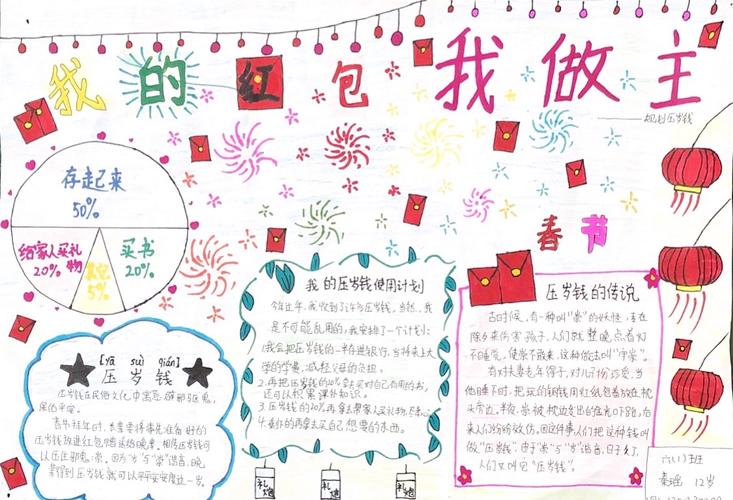 我的红包我做主
——规划压岁钱
存起来
50%
给家人买礼物
20%
其它
5%
买书
20%
春节
[yā suì qián]
压岁钱
压岁钱在民俗文化中寓意辟邪驱鬼,
保佑平安。
我的压岁钱使用计划
今年过年,我收到了许多压岁钱。当然,我
是不可能乱用的,我安排了一个计划:
1.我会把压岁钱的一半存进银行,当将来上大
学的学费,减轻父母的负担。
2.再把压岁钱的20%拿去买对自己有用的书,
还可以积累课外知识。
3.压岁钱的20%再拿去帮家人买礼物,尽孝心
4.最后的再拿去买自己想要的东西。
压岁钱的传说
古时候,有一种叫“祟”的妖怪,喜在
除夕来伤害孩子,人们就整晚点着灯
不睡觉,使祟不敢来,这种做法叫“守祟”。
有对夫妻老年得子,对儿子格外疼爱,当
他睡下时,把玩的铜钱用红纸包着放在枕
头旁边。半夜,祟被枕边发出的金光吓跑,后
来人们纷纷效仿,因这件事人们把这种钱叫
做“压祟钱”,由于“祟”与“岁”谐音,日子久了,
人们又叫它“压岁钱”。
礼炮
礼炮
礼炮
六(1)班
12岁